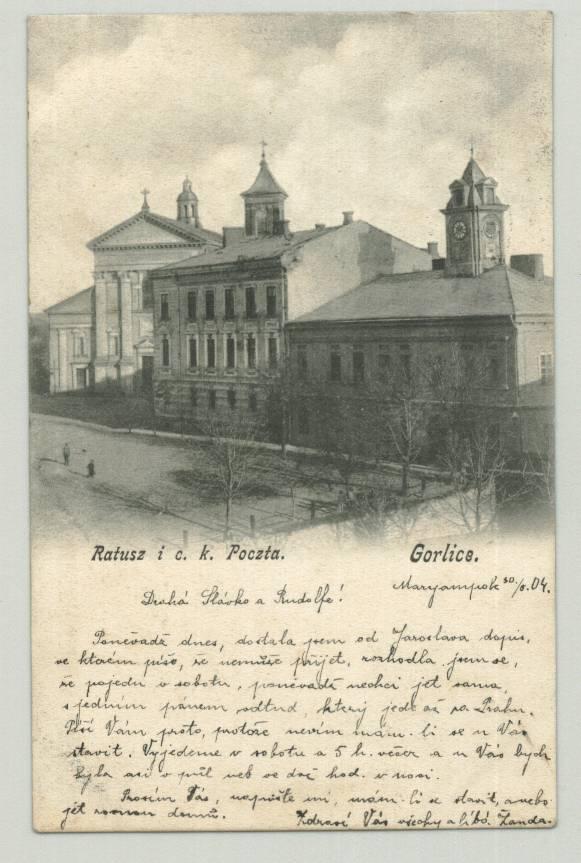 Ratusz i c. k. Poczta. Gorlice.
Maryampok 30./8. 04.
Drahá Slávko a Rudolfe!
Poněvadž dnes, dostala jsem od Jaroslava dopis,
ve kterém píše, že nemůže přijet, rozhodla jsem se,
že pojedu v sobotu, poněvadž nechci jet sama,
s jedním pánem odtud, který jede až za Prahu.
Píši Vám proto, protože nevím mám-li se u Vás
stavit. Vyjedeme v sobotu a 5 h. večer a u Vás bych
byla asi v půl neb ve dvě hod. v noci.
Prosím Vás, napište mi, mám-li se stavit, anebo
jet rovnou domů. Zdraví Vás všechny a líbá Zanda.